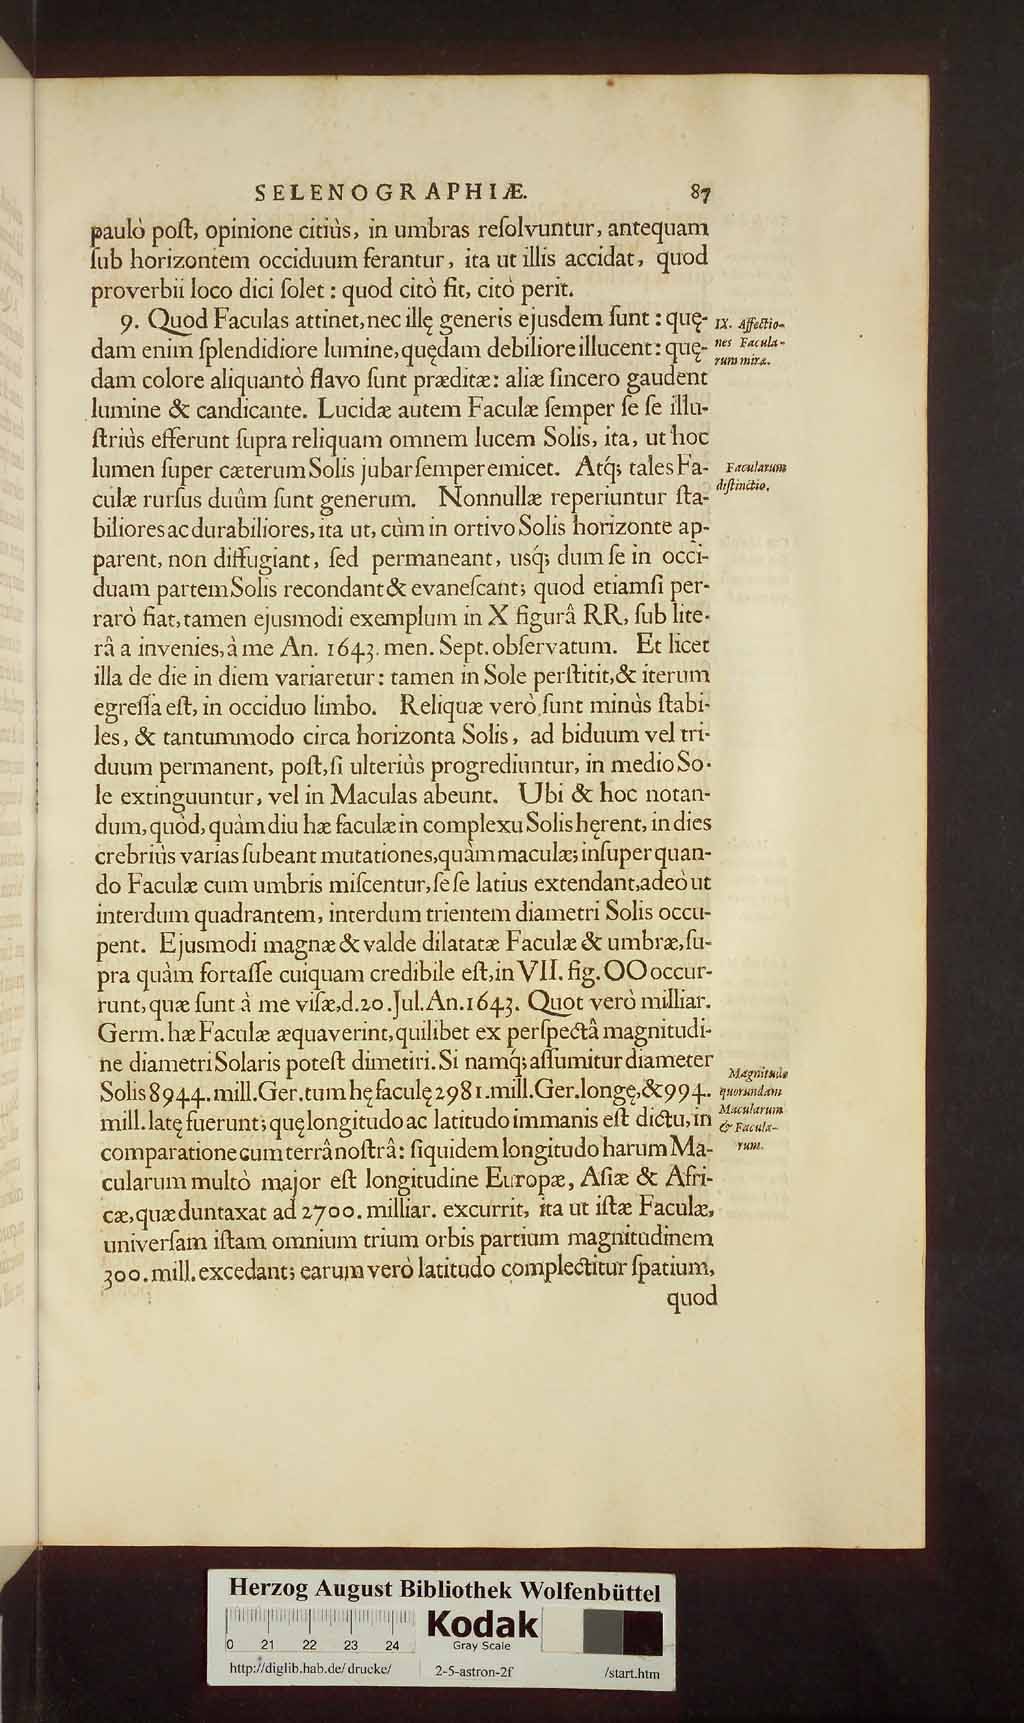 SELENOGRAPHIÆ. 87
paulò poſt, opinione citiùs, in umbras reſolvuntur, antequam
ſub horizontem occiduum ferantur, ita ut illis accidat, quod
proverbii loco dici ſolet : quod citò fit, citò perit.
9. Quod Faculas attinet, nec illę generis ejusdem ſunt : quę-
dam enim ſplendidiore lumine, quędam debiliore illucent: quę-
dam colore aliquantò flavo ſunt præditæ: aliæ ſincero gaudent
lumine & candicante. Lucidæ autem Faculæ ſemper ſe ſe illu-
ſtriùs efferunt ſupra reliquam omnem lucem Solis, ita, ut hoc
lumen ſuper cæterum Solis jubar ſemper emicet. Atq́; tales Fa-
culæ rurſus duûm ſunt generum. Nonnullæ reperiuntur ſta-
biliores ac durabiliores, ita ut, cùm in ortivo Solis horizonte ap-
parent, non diffugiant, ſed permaneant, usq́; dum ſe in occi-
duam partem Solis recondant & evaneſcant; quod etiamſi per-
rarò fiat, tamen ejusmodi exemplum in X figurâ RR, ſub lite-
râ a invenies, à me An. 1643. men. Sept. obſervatum. Et licet
illa de die in diem variaretur: tamen in Sole perſtitit, & iterum
egreſſa eſt, in occiduo limbo. Reliquæ verò ſunt minùs ſtabi-
les, & tantummodo circa horizonta Solis, ad biduum vel tri-
duum permanent, poſt, ſi ulteriùs progrediuntur, in medio So-
le extinguuntur, vel in Maculas abeunt. Ubi & hoc notan-
dum, quòd, quàm diu hæ faculæ in complexu Solis hęrent, in dies
crebriùs varias ſubeant mutationes, quàm maculæ; inſuper quan-
do Faculæ cum umbris miſcentur, ſe ſe latius extendant, adeò ut
interdum quadrantem, interdum trientem diametri Solis occu-
pent. Ejusmodi magnæ & valde dilatatæ Faculæ & umbræ, ſu-
pra quàm fortaſſe cuiquam credibile eſt, in VII. fig. OO occur-
runt, quæ ſunt à me viſæ, d. 20. Jul. An. 1643. Quot verò milliar.
Germ. hæ Faculæ æquaverint, quilibet ex perſpectâ magnitudi-
ne diametri Solaris poteſt dimetiri. Si namq́; aſſumitur diameter
Solis 8944. mill. Ger. tum hę faculę 2981. mill. Ger. longę, & 994.
mill. latę fuerunt; quę longitudo ac latitudo immanis eſt dictu, in
comparatione cum terrâ noſtrâ: ſiquidem longitudo harum Ma-
cularum multò major eſt longitudine Europæ, Aſiæ & Afri-
cæ, quæ duntaxat ad 2700. milliar. excurrit, ita ut iſtæ Faculæ,
univerſam iſtam omnium trium orbis partium magnitudinem
300. mill. excedant; earum verò latitudo complectitur ſpatium,
quod
IX. Affectio-
nes Facula-
rum miræ.
Facularum
diſtinctio.
Magnitudo
quorundam
Macularum
& Facula-
rum.
Herzog August Bibliothek Wolfenbüttel
Kodak
Gray Scale
0 21 22 23 24
http://diglib.hab.de/drucke/ 2-5-astron-2f /start.htm